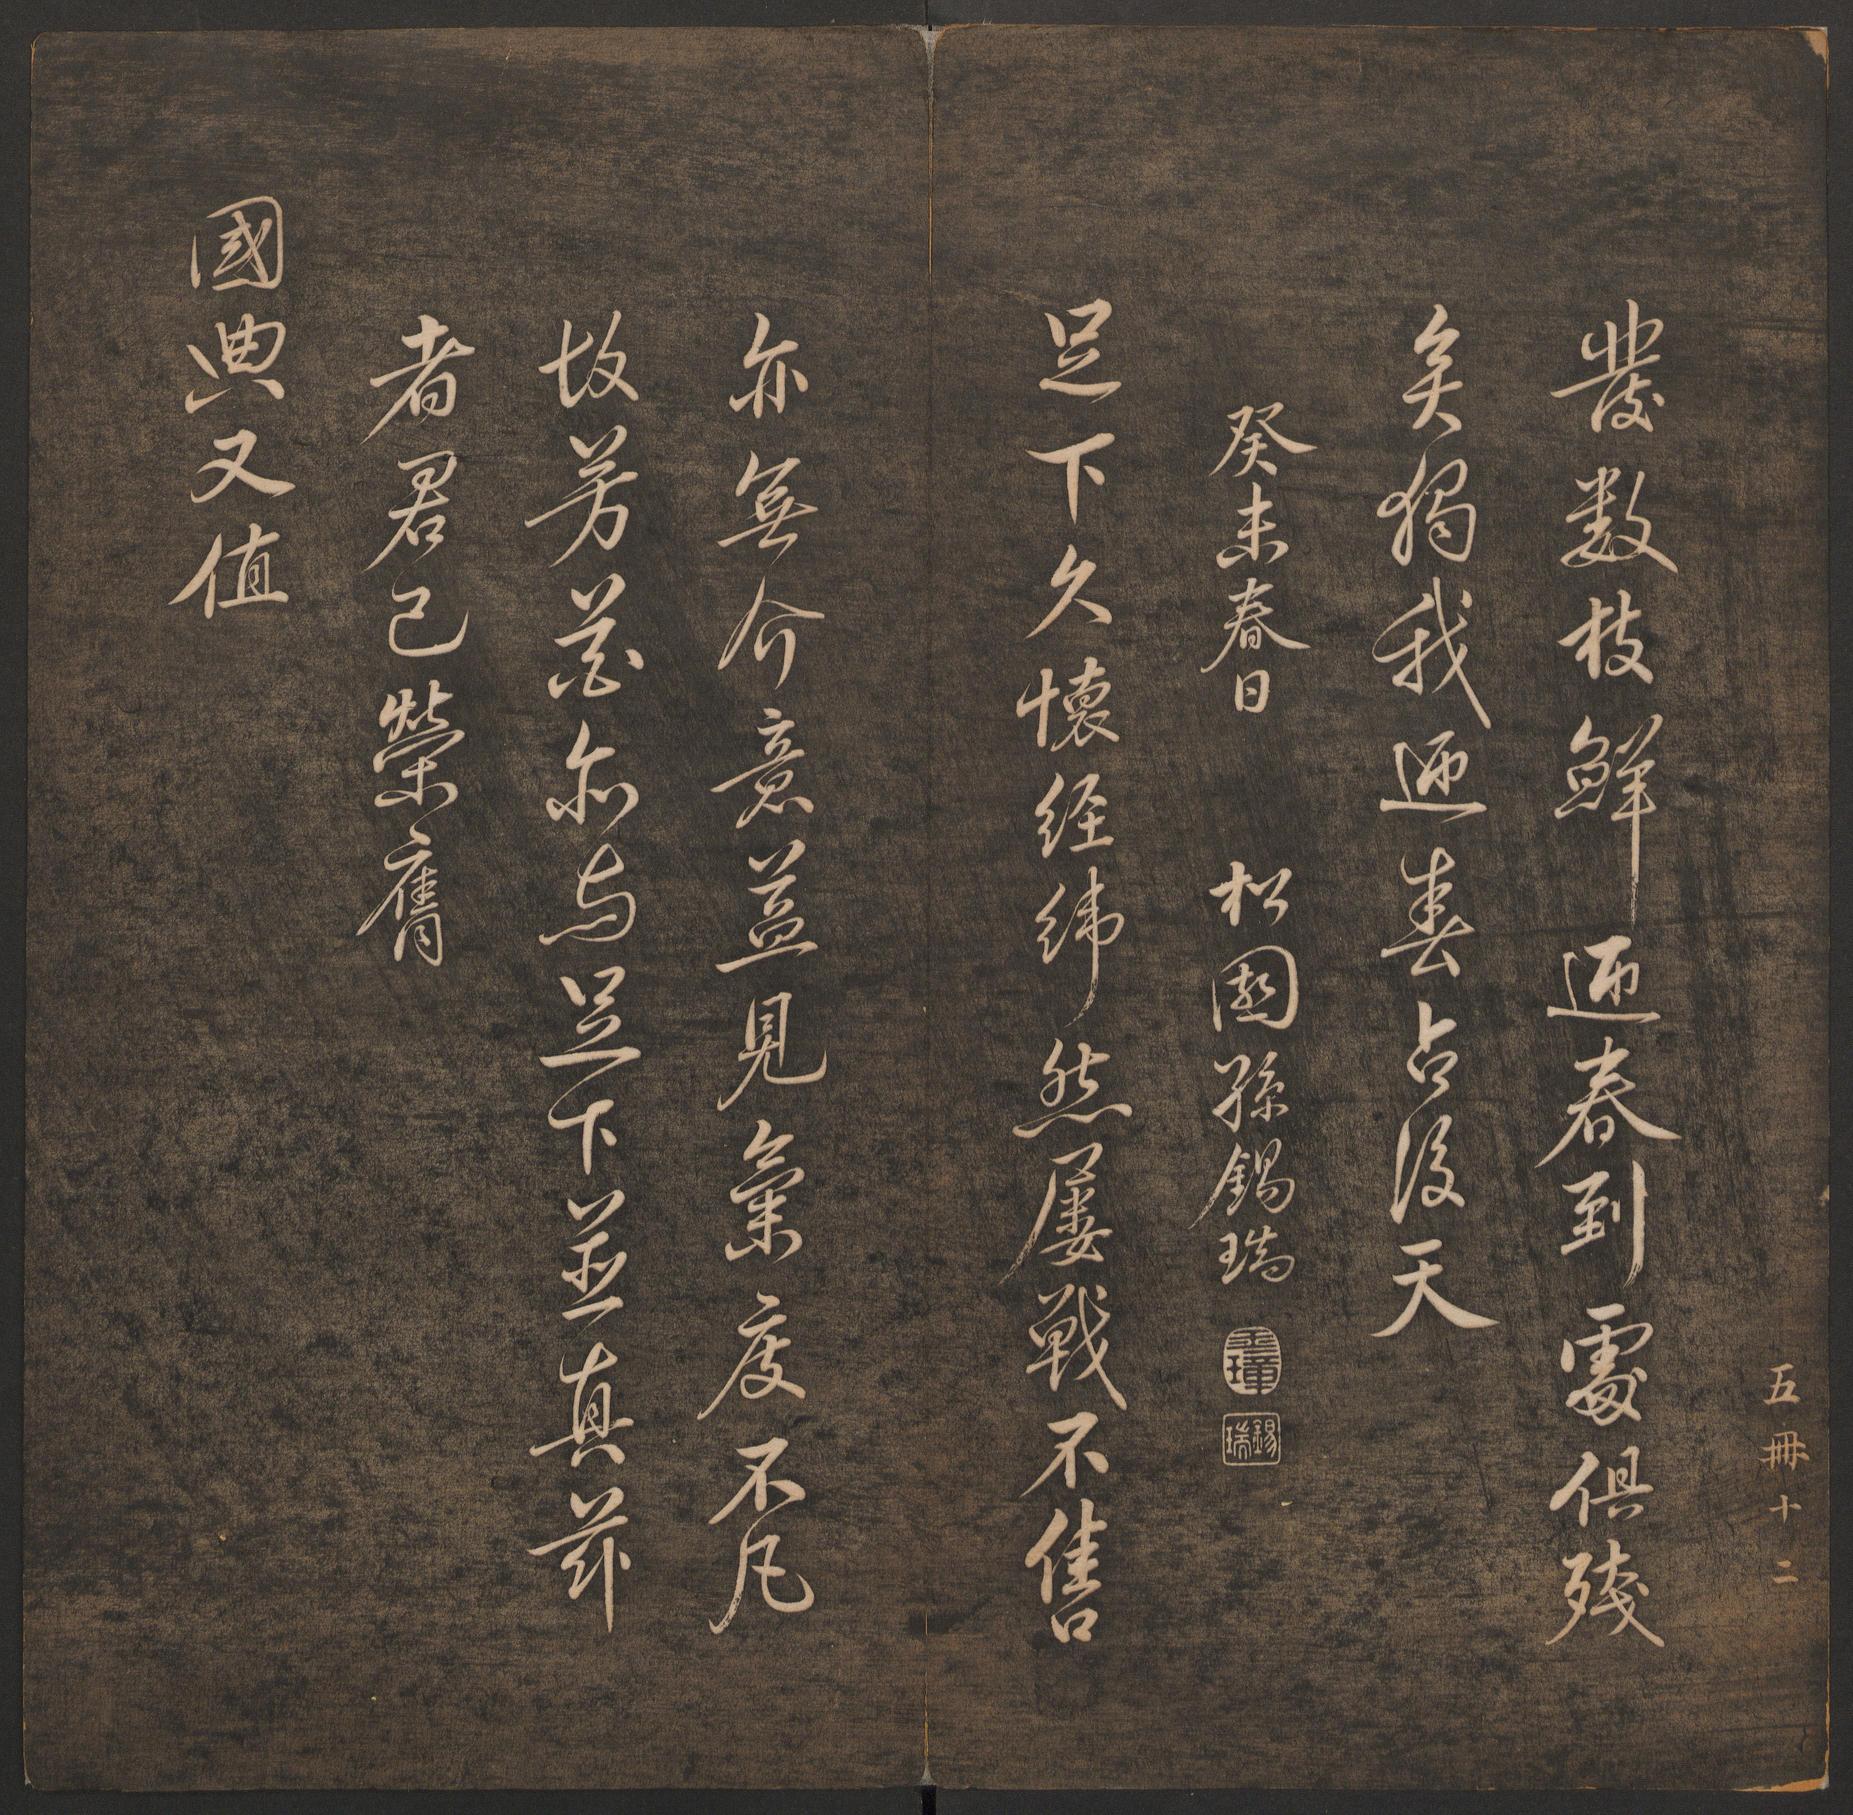 發數枝鮮迎春到處俱殘
矣獨我迎春占後天
癸未春日 松園孫錫瑞
錫瑞
足下久懷經緯然屢戰不售
亦無介意益見氣度不凡
故芳花亦与足下並真茲
者君已榮膺
國典又值
五冊十二